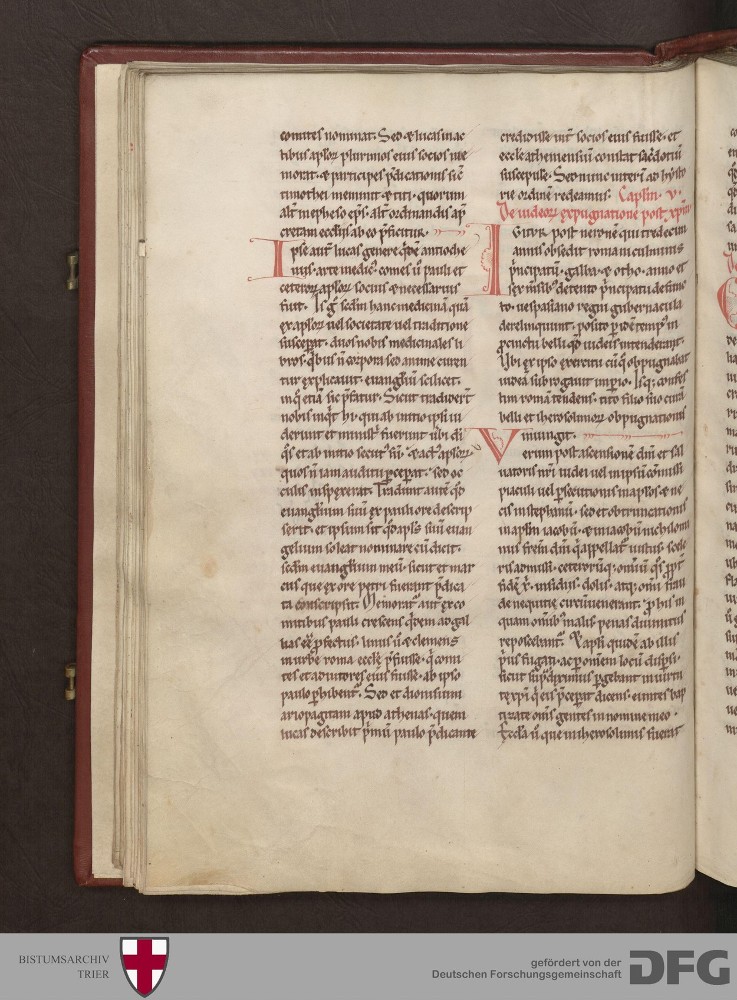 comites nominat. Sed & lucas in ac
tibus aplor̃ plurimos eius socios me
morat. & participes p̃dicationis sic̃
timothei meminit & titi. quorum
alt̃ in epheso ep̃s. alt̃ ordinandis ap̃
cretam eccl̃iis ab eo p̃ficitur.
Ipse aut̃ lucas genere q̃de antioche
nus. arte medic. comes ũ pauli et
ceteror̃ aplor̃ socius & necessarius
fuit. Is g̃ scd̃m hanc medicinã quã
ex aplor̃ uel societate uel traditione
susceperat. duos nobis medicinales li
bros. q̃bus ñ corpora sed anime curen
tur explicauit. euangl̃iũ scilicet.
in q̃ etiã sic p̃fatur. Sicut tradider̃t
nobis inq̃t hi. qui ab initio ipsi ui
derunt et ministri fuerunt ũbi di
q̃s et ab initio secut᷒ sũ. & act᷒ aplor̃
quos ñ iam auditu p̃ceperat. sed oc
culis inspexerat. Tradunt aute q̃d
euangl̃ium suũ ex pauli ore descrip
serit. et ipsum sit q̃d apl̃s suũ euan
gelium soleat nominare cũ dicit.
scd̃m euangl̃ium meũ. sicut et mar
cus que ex ore petri fuerant p̃dica
ta conscripsit. Memorat᷒ aut̃ ex co
mitibus pauli crescens q̃dem ad gal
lias eẽ p̃fectus. linus ũ & clemens
in urbe roma eccl̃e p̃fuisse. q̃ comi
tes et adiutores eius fuisse. ab ipso
paulo p̃hibent᷒. Sed et dionisium
ariopagitam apud athenas. quem
lucas describit p̃mũ paulo p̃dicante
credidisse int̃ socios eius fuisse. et
eccl̃e atheniensiũ constat sac̃dotiũ
suscepisse. Sed nunc interĩ ad hysto
rie ordinẽ redeamus. Caplm. v.
De iudeor̃ expugnatione post xp̃m
IGitur post nerone qui tredecim
annis obsedit romani culminis
p̃ncipatũ. galba. & otho. anno et
sex m̃sib᷒ detento p̃ncipatu defunc
to. uespasiano regni gubernacula
derelinquunt. posito p̃ idẽ temp᷒ in
p̃cinctu belli q̃d iudeis intenderant.
Vbi ex ipso exercitu cũ q̃ obpugnabat
iudeã subrogauit imp̃io. Isq; confes
tim romã tendens. tito filio suo curã
belli et iherosolimor̃ obpugnationis
iniungit.
Verum post ascensionẽ dm̃ et sal
uatoris nr̃i iudei uel in ipsũ cõmissi
piaculi uel p̃secutionis in aplos. & ne
cis in stephanũ. sed et obtruncationis
in aplm iacobũ. & in iacobũ nichilomi
nus frem dm̃ q̃ appellat᷒ iustus. scele
ris admissi. ceterorũq; omniũ q̃s p̃pt̃
fidẽ x̃. insidiis. dolis. atq; omi frau
de nequitie circũuenerant. p̃ his in
quam omib᷒ malis penas diuinitus
reposcebant. & apli quidẽ ab illis
p̃us fugati. ac p̃ omem locũ dispersi.
sicut sup̃ diximus p̃gebant in uirtu
te xp̃i q̃ eis p̃ceperat dicens. euntes bap
tizate oms gentes in nomine meo.
Eccl̃a ũ que in iherosolimis fuerat
BISTUMSARCHIV
TRIER
gefördert von der
Deutschen Forschungsgemeinschaft
DFG